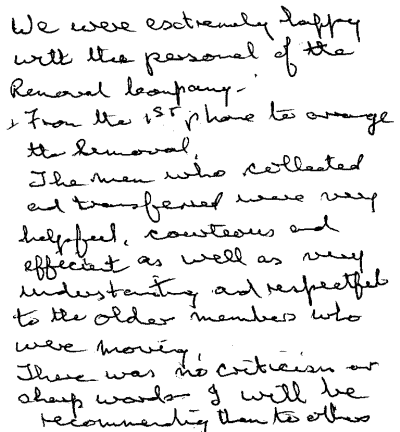 We were extremely happy
with the personal of the
Removal Company.
From the 1st phone to arrange
the Removal.
The men who collected
and transferred were very
helpful, courteous and
efficient as well as very
understanding and respectful
to the older members who
were moving.
There was no criticism or
sharp words I will be
recommending them to others